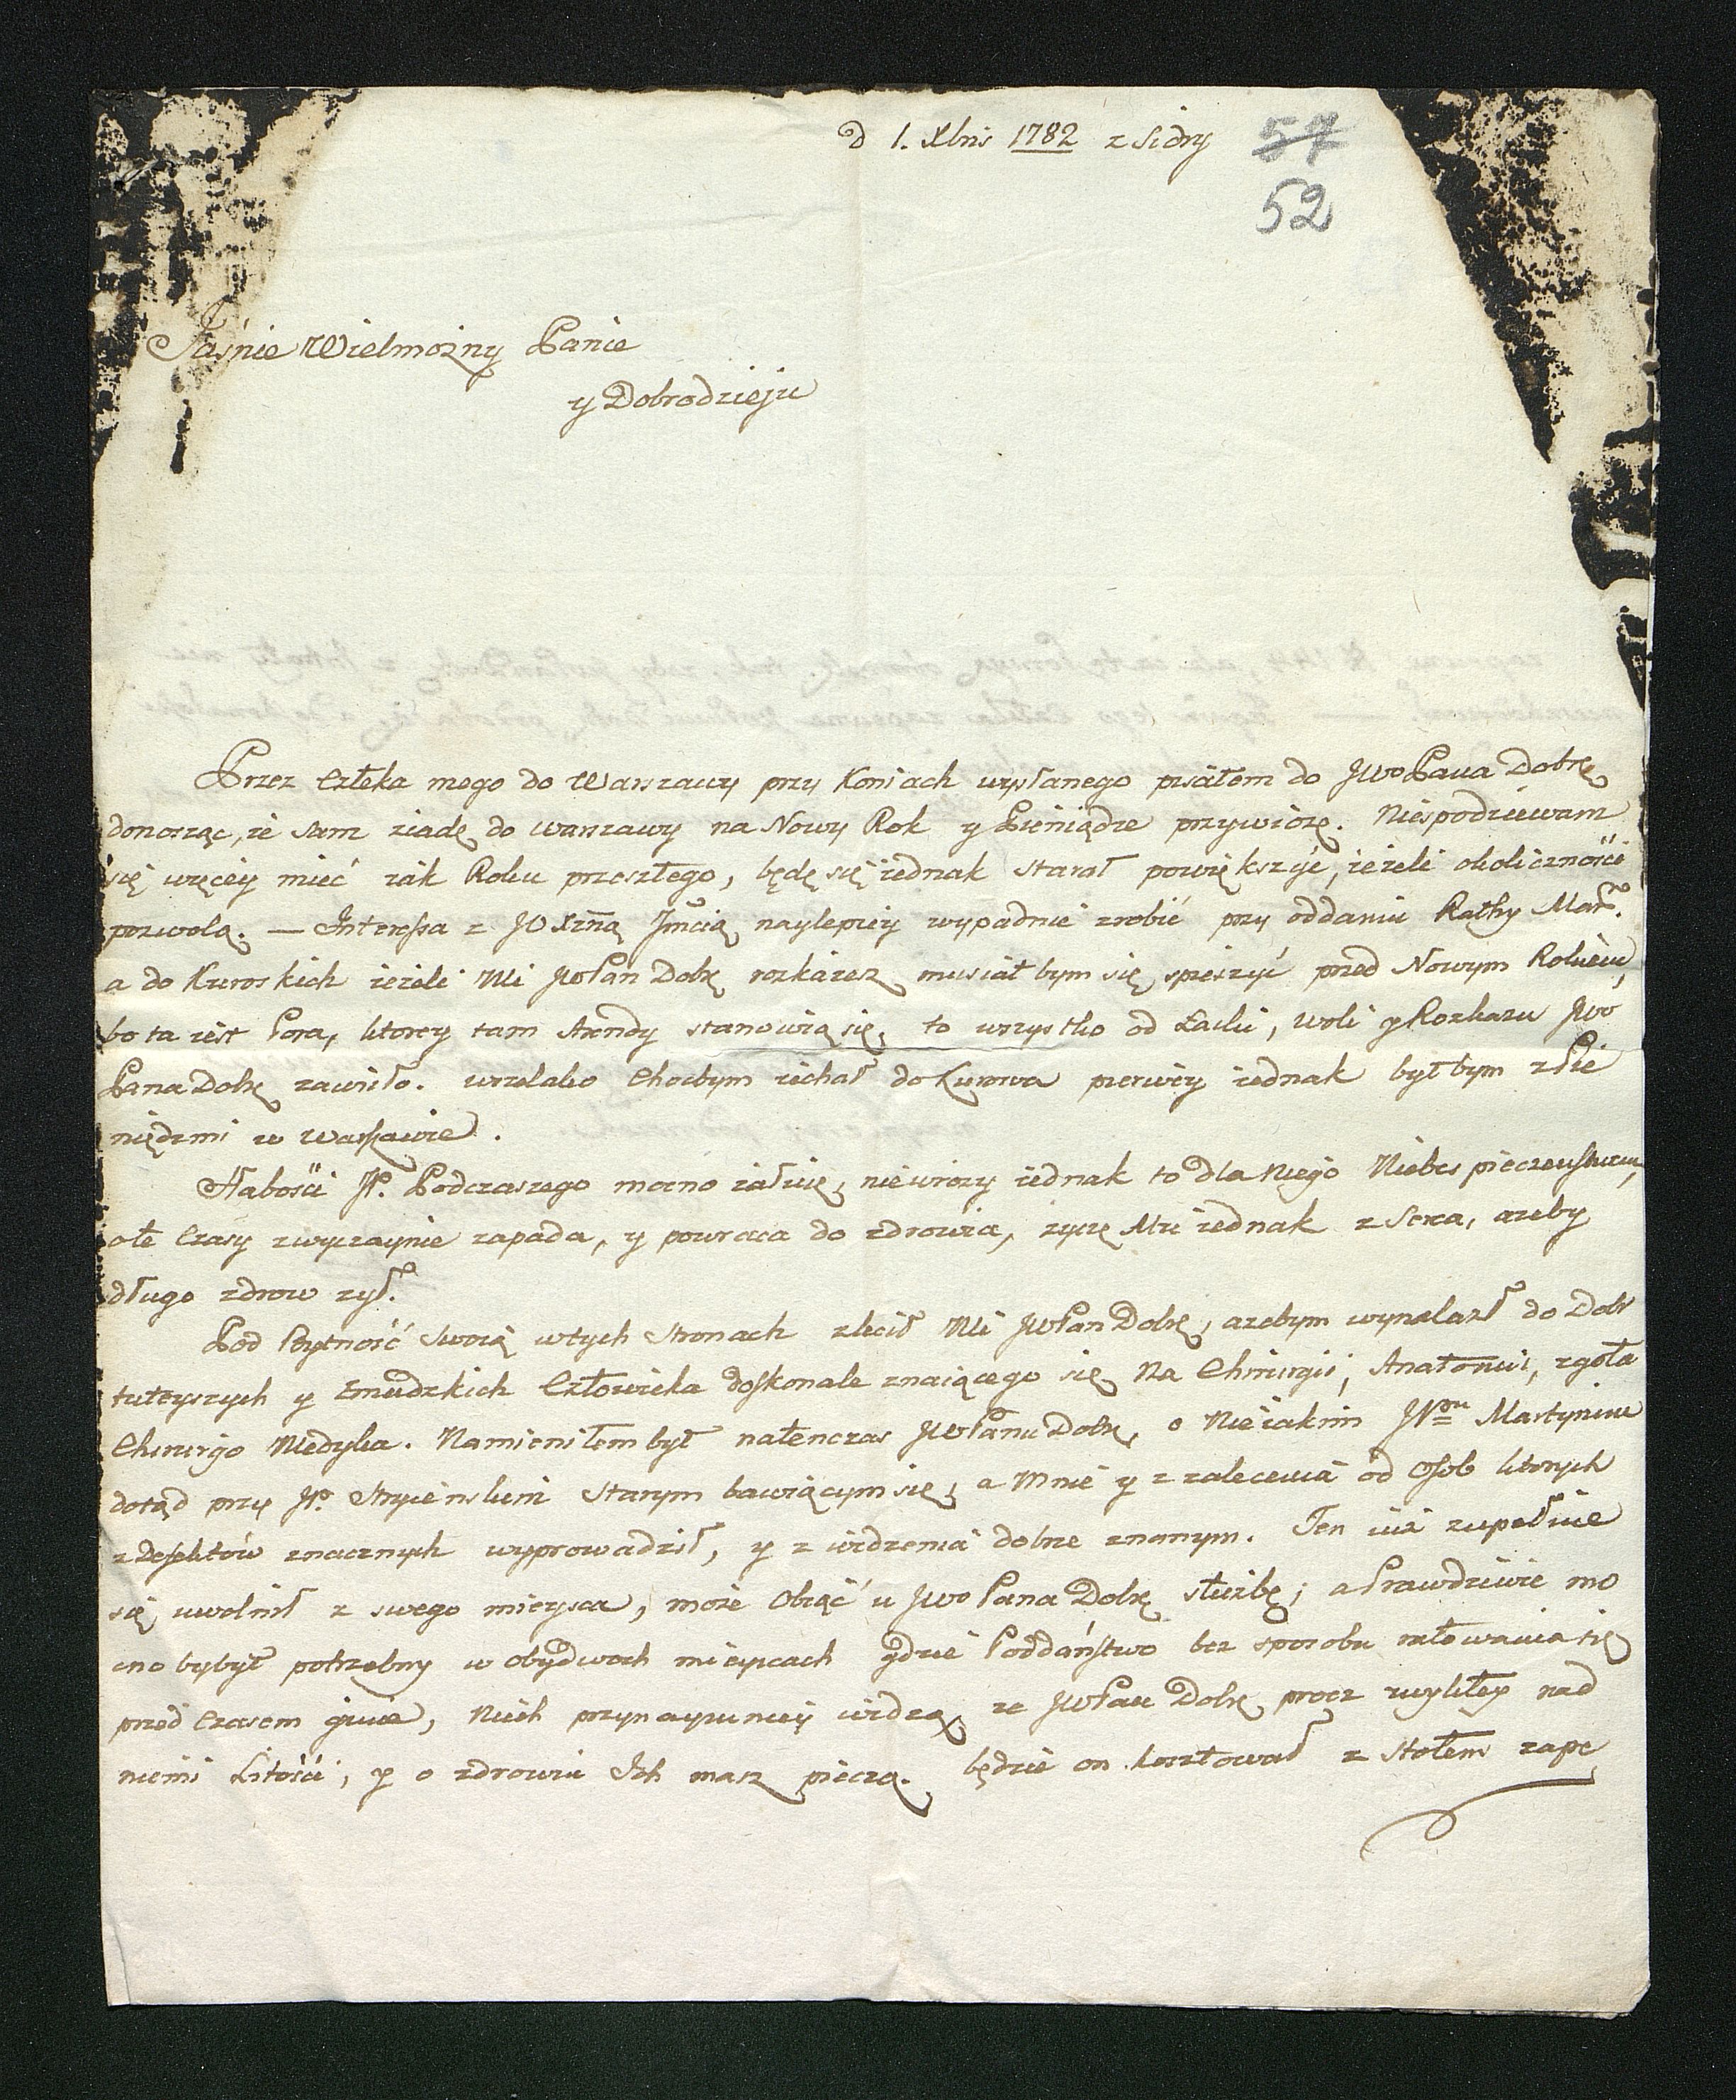 d 1. Xbris 1782 z Sidry
57
52
Jaśnie Wielmożny Panie
y Dobrodzieju
Przez Człeka mego do Warszawy przy Koniach wysłanego pisałem do JWo Pana Dobrę
donosząc, że sam ziadę do warszawy na Nowy Rok y Pieniądze przywiozę. Niespodziewam
się więcey mieć iak Roku przeszłego, będę się iednak starał powiększyć, ieżeli okoliczności
pozwolą. — Interessa z JOXżną Jmcią naylepiey wypadnie zrobić przy oddaniu Rathy Mar.
a do Kuroskich ieżeli Mi JWPan Dobrę rozkażesz musiał bym się spieszyć przed Nowym Rokiem,
bo ta iest Pora, ktorey tam Arendy stanowią się, to wszystko od Łaski, woli y Rozkazu JWo
Pana Dobrę zawisło. wszelako Chocbym iechał do Kurowa pierwey iednak był bym z Pie
niędzmi w Warszawie.
Słabości JP. Podczaszego mocno żałuię, niewroży iednak to dla Niego Niebespieczenstwa,
o te Czasy zwyczaynie zapada, y powraca do zdrowia, życzę Mu iednak z Serca, ażeby
długo zdrow żył.
Pod Bytność Swoią w tych Stronach zlecił Mi JWPan Dobrę, ażebym wynalazł do Dobr
tuteyszych y Zmudzkich Człowieka doskonale znaiącego się Na Chirurgii, Anatomii, zgoła
Chirurgo Medyka. Namieniłem był natenczas JWPanu Dobrę, o Nieiakim JPanu Martynim
dotąd przy JP. Strycienskim Starym bawiącym się, a Mnie y z zalecenia od Osob ktorych
z Defektów znacznych wyprowadził, y z widzenia dobrze znanym. Ten iuż zupełnie
się uwolnił z swego mieysca, może Obiąć u JWo Pana Dobrę służbę; a Prawdziwie mo
cno by był potrzebny w obydwoch mieyscach gdzie Poddaństwo bez sposobu ratowania się
przed Czasem ginie, Niech przynaymniey widzą, ze JWPan Dobrę procz zwykłey nad
niemi Litości, y o zdrowiu Ich masz pieczą. będzie on kosztował z Stołem zape